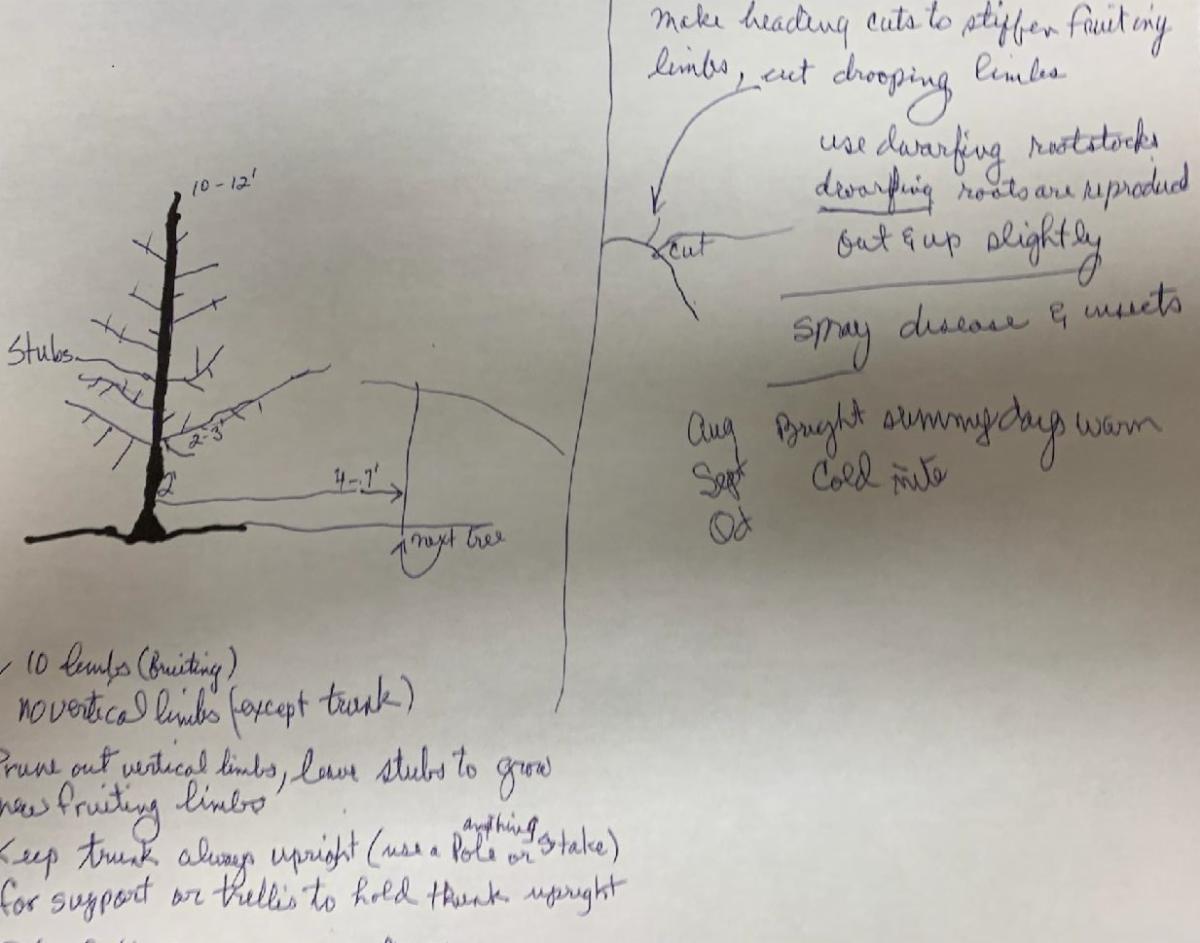 make heading cuts to stiffen fruiting
limbs, cut drooping limbs
use dwarfing rootstocks
dwarfing roots are reproduced
out & up slightly
cut
spray disease & insects
Aug Bright sunny days warm
Sept Cold nite
Oct
10-12'
Stubs
2-3'
2'
4-7'
next tree
10 limbs (fruiting)
no vertical limbs (except trunk)
Prune out vertical limbs, leave stubs to grow
new fruiting limbs
anything
Keep trunk always upright (use a Pole or stake)
for support or trellis to hold trunk upright